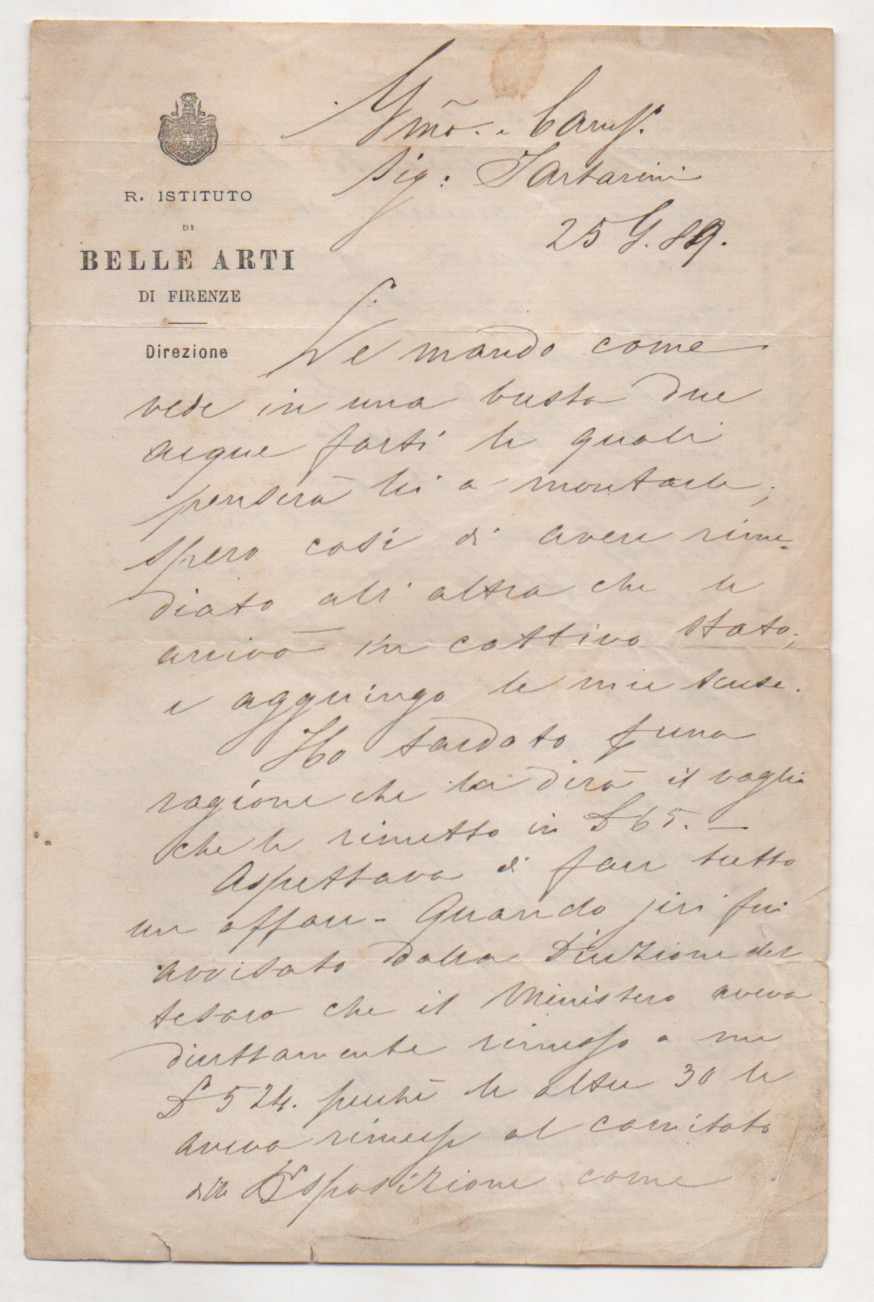 R. ISTITUTO
DI
BELLE ARTI
DI FIRENZE
Direzione
Gmõ. e Cariss.
Sig: Tartarini
25 G. 89.
Le mando come
vede in una busta due
acque forti le quali
penserà lei a montarle;
spero così di avere rime-
diato all'altra che le
arrivò in cattivo stato;
e aggiungo le mie scuse.
Ho tardato una
ragione che la dirà il vaglia
che le rimetto in £ 65. —
Aspettava di fare tutto
un affare - Quando jeri fui
avvisato dalla Direzione del
tesoro che il Ministero aveva
direttamente rimesso a me
£ 524. perchè le altre 30 le
aveva rimesse al comitato
Esposizione come